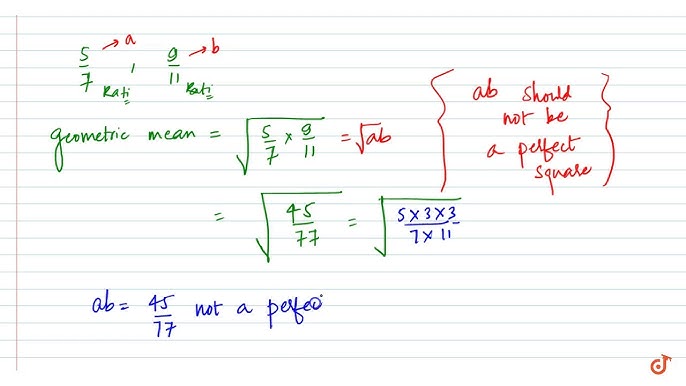 5/7 → a , 9/11 → b
Rati Rati
geometric mean = √(5/7 × 9/11) = √ab
{ ab should not be a perfect square }
= √(45/77) = √((5×3×3)/(7×11))
ab = 45/77 not a perfec